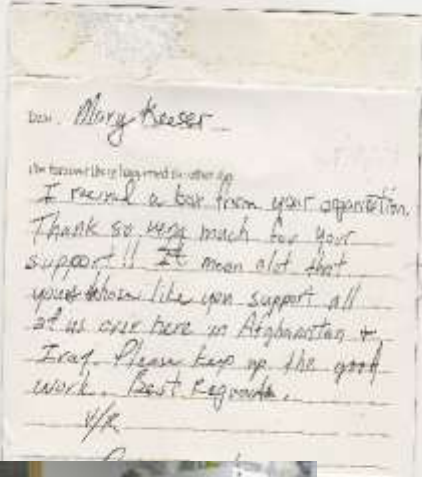 Dear, Mary Keeser
I received a box from your organization.
Thank so very much for your
support!! It mean alot that
like you support all
of us over here in Afghanistan +
Iraq. Please keep up the good
work. Best Regards,
V/R